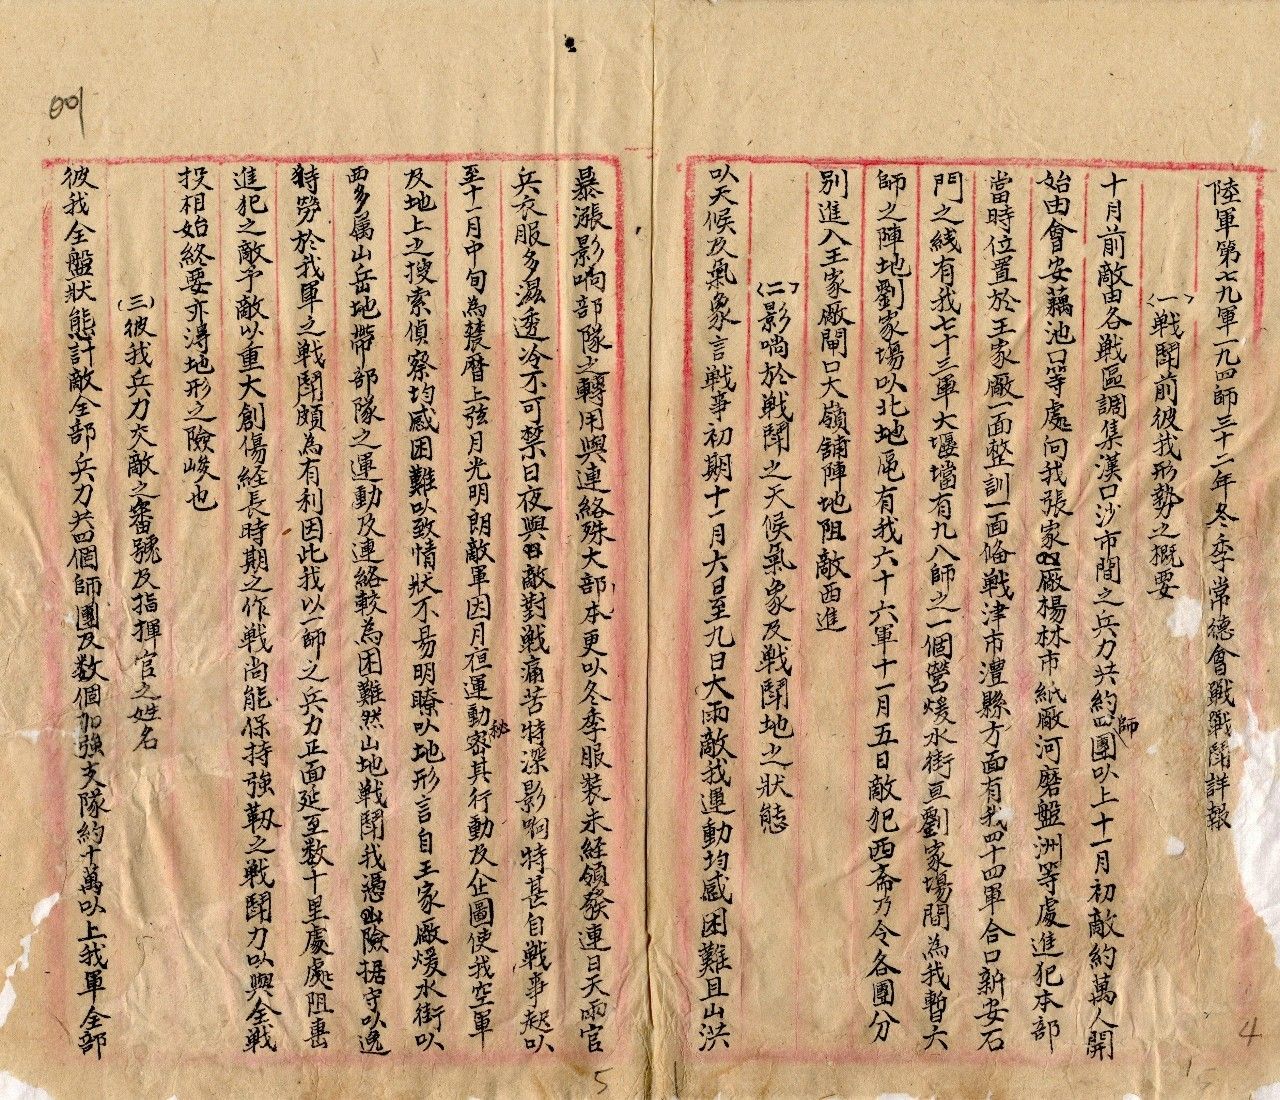 陸軍第七九軍一九四師三十二年冬季常德會戰戰鬪詳報
〈一〉戰鬪前彼我形勢之概要
十月前敵由各戰區調集漢口沙市間之兵力共約四師團以上十一月初敵約萬人開
始由會安藕池口等處向我張家廠楊林市紙廠河磨盤洲等處進犯本部
當時位置於王家廠一面整訓一面俻戰津市澧縣方面有我四十四軍合口新安石
門之线有我七十三軍大堰壋有九八師之一個營煖水街亘劉家場間為我暫六
師之陣地劉家場以北地區有我六十六軍十一月五日敵犯西齋乃令各團分
別進入王家廠閘口大嶺舖陣地阻敵西進
〈二〉影响於戰鬪之天候氣象及戰鬪地之狀態
以天候及氣象言戰爭初期十一月六日至九日大雨敵我運動均感困難且山洪
暴漲影响部隊之轉用與連絡殊大部本更以冬季服裝未經領發連日天雨官
兵衣服多濕透冷不可禁日夜與敵對戰痛苦特深影响特甚自戰爭起以
至十一月中旬為農曆上弦月光明朗敵軍因月夜運動秘密其行動及企圖使我空軍
及地上之搜索偵察均感困難以致情狀不易明瞭以地形言自王家廠煖水街以
西多属山岳地帶部隊之運動及連絡較為困難然山地戰鬪我憑山險据守以逸
待勞於我軍之戰鬪頗為有利因此我以一師之兵力正面延亘数十里處處阻擊
進犯之敵予敵以重大創傷経長時期之作戰尚能保持強靱之戰鬪力以與全戰
投相始終要亦淂地形之險峻也
(三)彼我兵力交敵之番號及指揮官之姓名
彼我全盤狀態計敵全部兵力共四個師團及数個加強支隊約十萬以上我軍全部
4
5